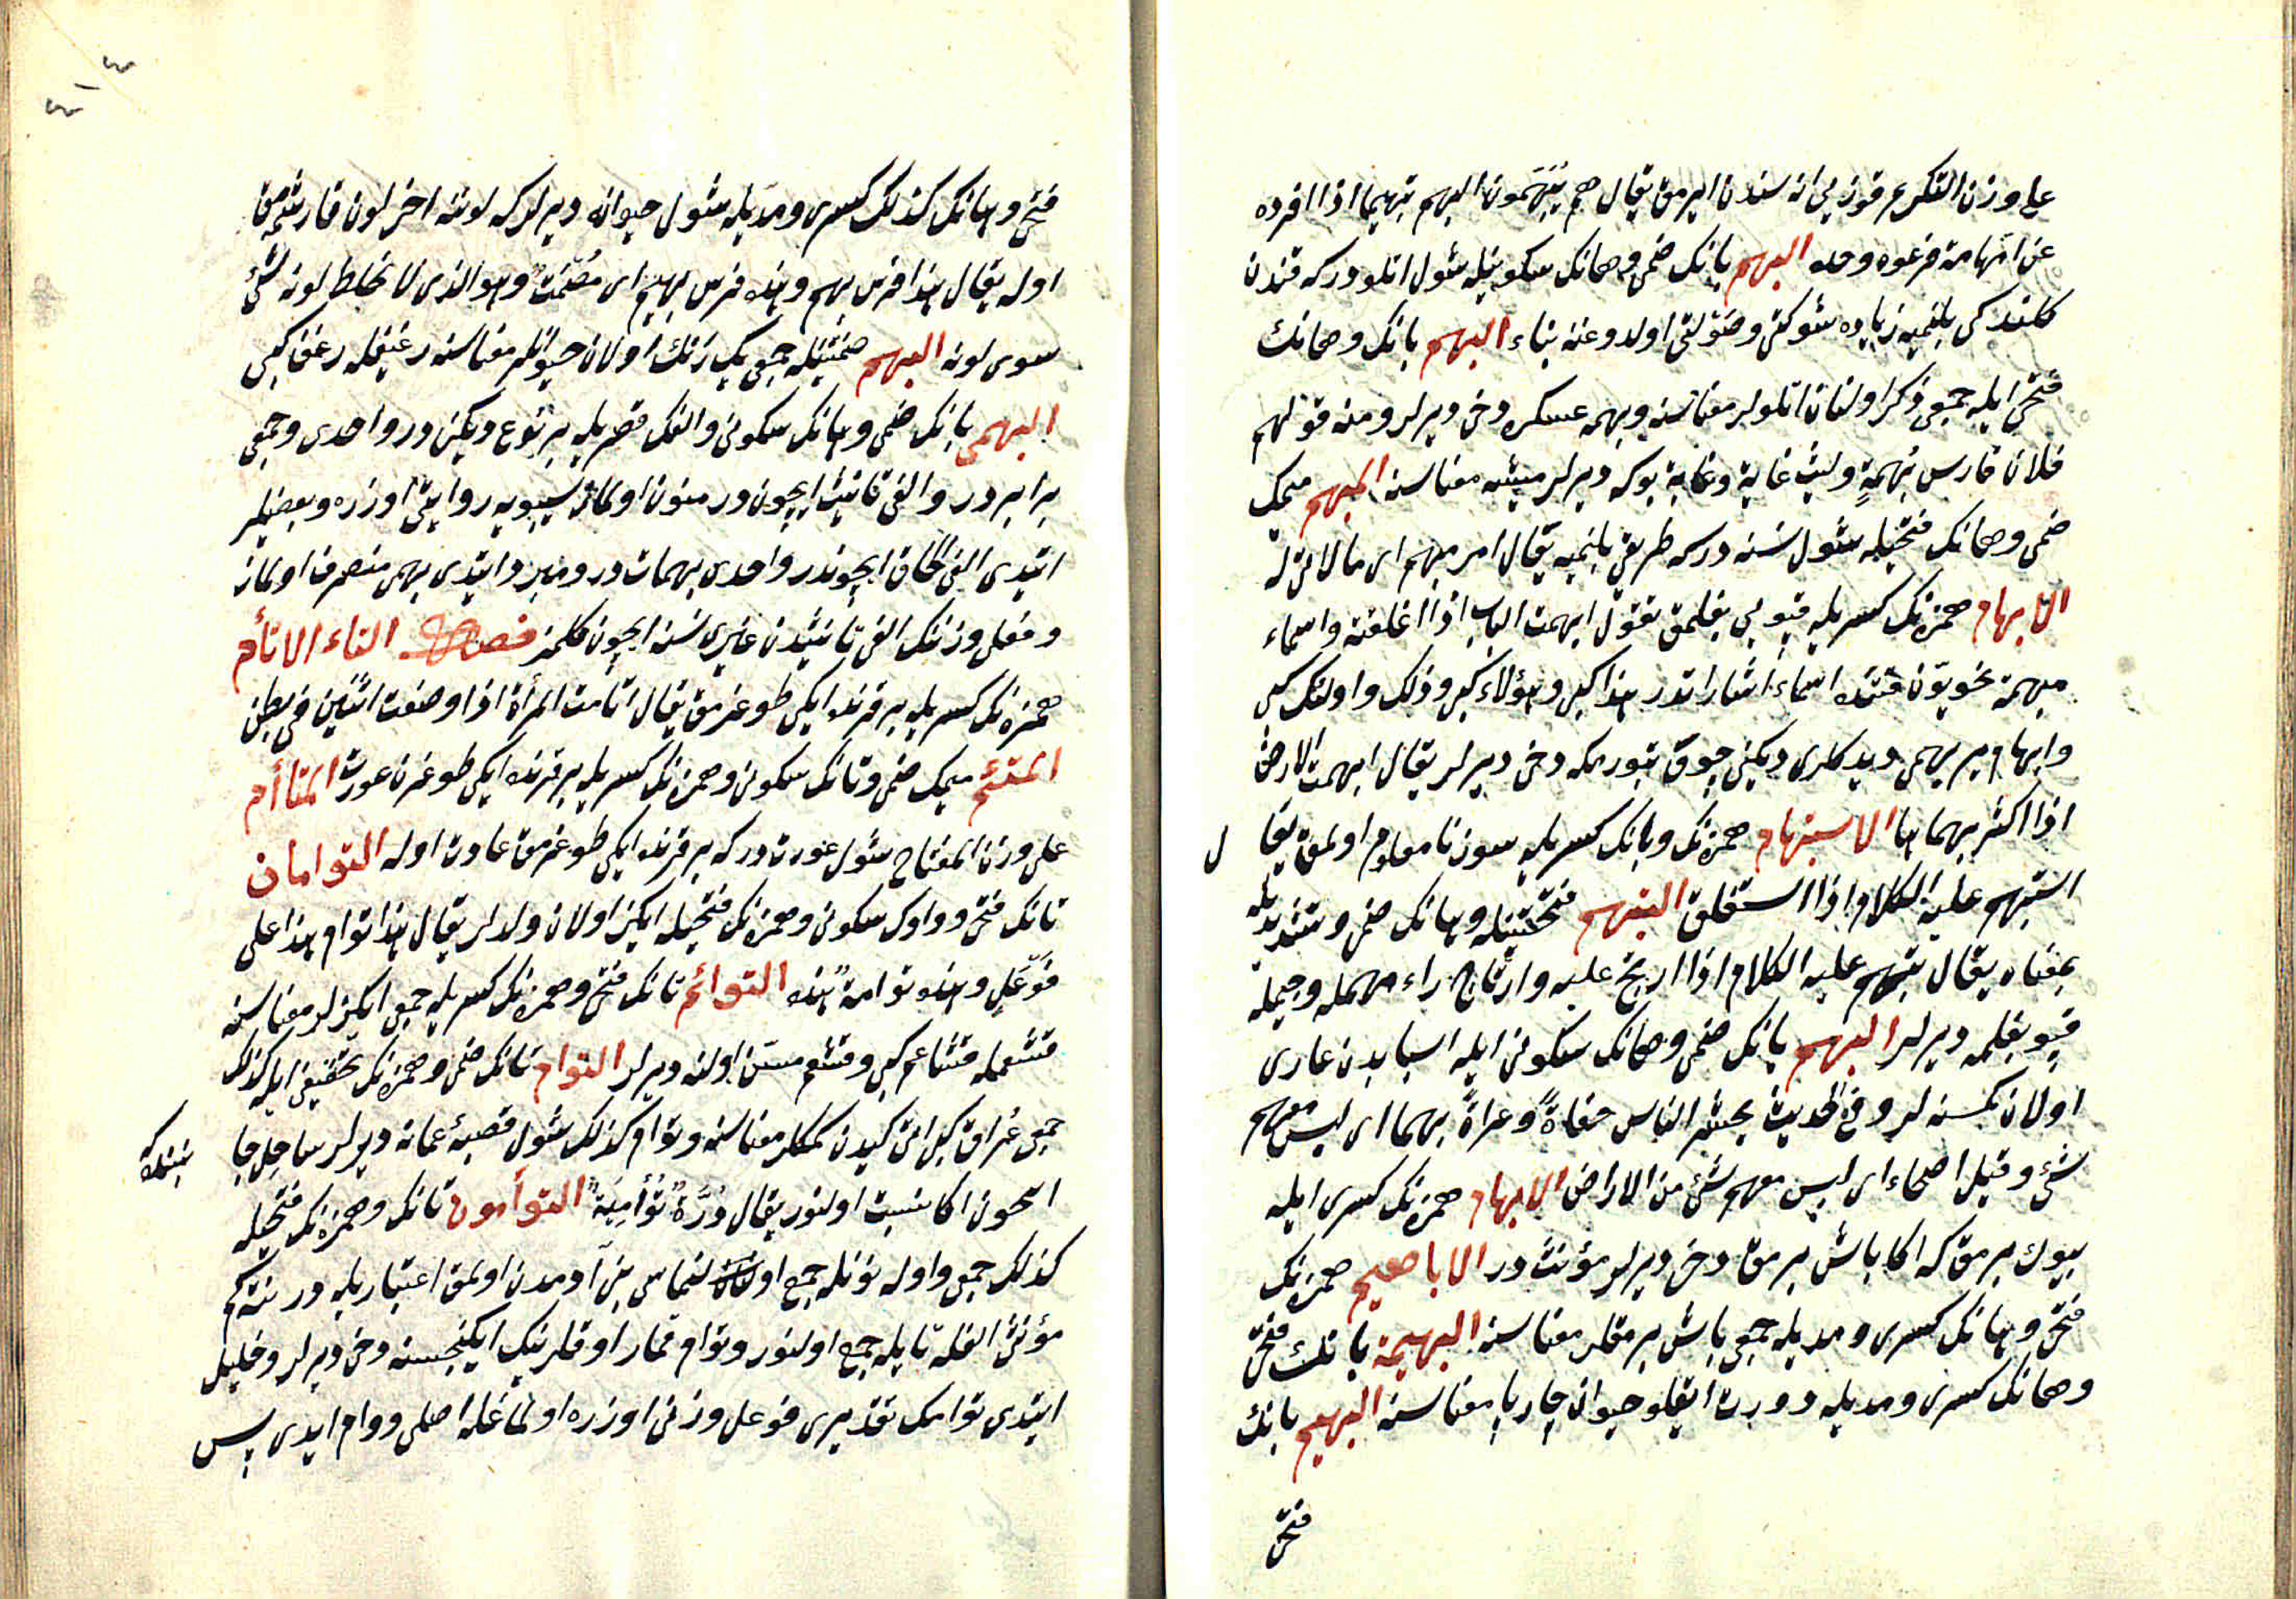 على وزن التكريم قوزيي اناسندن ايرمق يقال هم يُبَهِّمون البهم تبهيما اذا افرده
عن امهاته فرعوه وحده البهم بانك ضمى وهانك سكونيله شول اتلودركه قندن
كلدكى بلنميه زياده شوكتى وصولتى اولدوغنه بناء البهم بانك وهانك
فتحى ايله جمعى ذكر اولنان اتلولر معناسنه وبهمه عسكره دخى ديرلر ومنه قولهم
فلان فارس بُهمةٍ وليث غابة وغابة بوكه ديرلر ميشه معناسنه المبهم ميمك
ضمى وهانك فتحيله شول نسنه دركه طريقى بلنميه يقال امر مبهم اى ما لاتى له
الابهام همزه نك كسريله قپويى بغلمق تقول ابهمت الباب اذا اغلقته واسماء
مبهمة نحويّون قتنده اسماء اشاراتدر هذا كبى وهؤلاء كبى وذلك واولئك كبى
وابهام ير بهمى ديدكلرى ديكنى چوق بتورمكه دخى ديرلر يقال ابهمت الارض
اذا اكثر بهماها الاستبهام همزه نك وبانك كسريله سوز نامعلوم اولمق يقا ل
استبهم عليه الكلام اذا استغلق التبهم فتحتينله وهانك ضمى وتشديديله
بمعناه يقال تبهم عليه الكلام اذا ارتج عليه وارتاج راء مهمله وجيمله
قپو بغلمه ديرلر البهم بانك ضمى وهانك سكونى ايله اسبابدن عارى
اولان كمسنه لر وفى الحديث يحشر الناس حفاةً وعراةً بهما اى ليس معهم
شئ وقيل اصحاء اى ليس معهم شئ من الامراض الابهام همزه نك كسرى ايله
بيوك برمق كه اكا باش برمق دخى ديرلر مؤنث در الاباهيم همزه نك
فتحى وهانك كسرى ومديله جمعى باش برمقلر معناسنه البهيمة بانك فتحى
وهانك كسرى ومديله دورت اياقلو حيوان چارپا معناسنه البهيم بانك
فتحى
فتحى وهانك كذلك كسرى ومديله شول حيوانه ديرلركه لوننه اخر لون قارشمق
اوله يقال هذا فرس بهيم وهذه فرس بهيم اى مُصْمَتٌ وهو الذى لا يخالط لونه شئ
سوى لونه البهم ضمتينله جمعى يك رنك اولان حيوانلر معناسنه رغيفله رغف كبى
البهمى بانك ضمى وهانك سكونى والفك قصريله بر نوع ديكندر واحدى وجمعى
برابردر والفى تانيث ايچوندر منون اولماز سيبويه روايتى اوزره وبعضيلر
ايتدى الفى الحاق ايچوندر واحدى بهمات در ومبرد ايتدى بهمى منصرف اولماز
وفعلى وزننك الفى تانيثدن غيرى نسنه ايچون كلمز فصل التاء الاتأم
همزه نك كسريله بر قرنده ايكى طوغرمق يقال اتأمت المرأة اذا وضعت اثنين فى بطن
المتئم ميمك ضمى وتانك سكونى وهمزه نك كسريله بر قرنده ايكى طوغرن عورت المتأام
على وزن المفتاح شول عورت دركه بر قرنده ايكى طوغرمق عادت اوله التوامان
تانك فتحى وواوك سكونى وهمزه نك فتحيله ايكز اولان ولدلر يقال هذا توام هذا على
فَوْعَلٍ وهذه توامة هذه التوائم تانك فتحى وهمزه نك كسريله جمعى ايكزلر معناسنه
قشعمله قشاعم كبى وقشعم مسن اولنه ديرلر التوام تانك ضمى وهمزه نك تخفيفى ايله كذلك
جمعى عراق كبى اتى كيدن كمكلر معناسنه وتوام كذلك شول قصبۀ عمانه ديرلر ساحل جا نبنده كه
انجون اكا نسبت اولنور يقال دُرَّةٌ تُؤَامِيَةٌ التوأمون تانك وهمزه نك فتحيله
كذلك جمعى واوله نونله جمع اولنماسى بنى آدمدن اولمق اعتباريله در نته كم
مؤنثى الفله تايله جمع اولنور وتوام قمار اوقلرينك ايكنجسنه دخى ديرلر وخليل
ايتدى توامك تقديرى فوعل وزنى اوزره اولماغله اصلى ووام ايدى پس